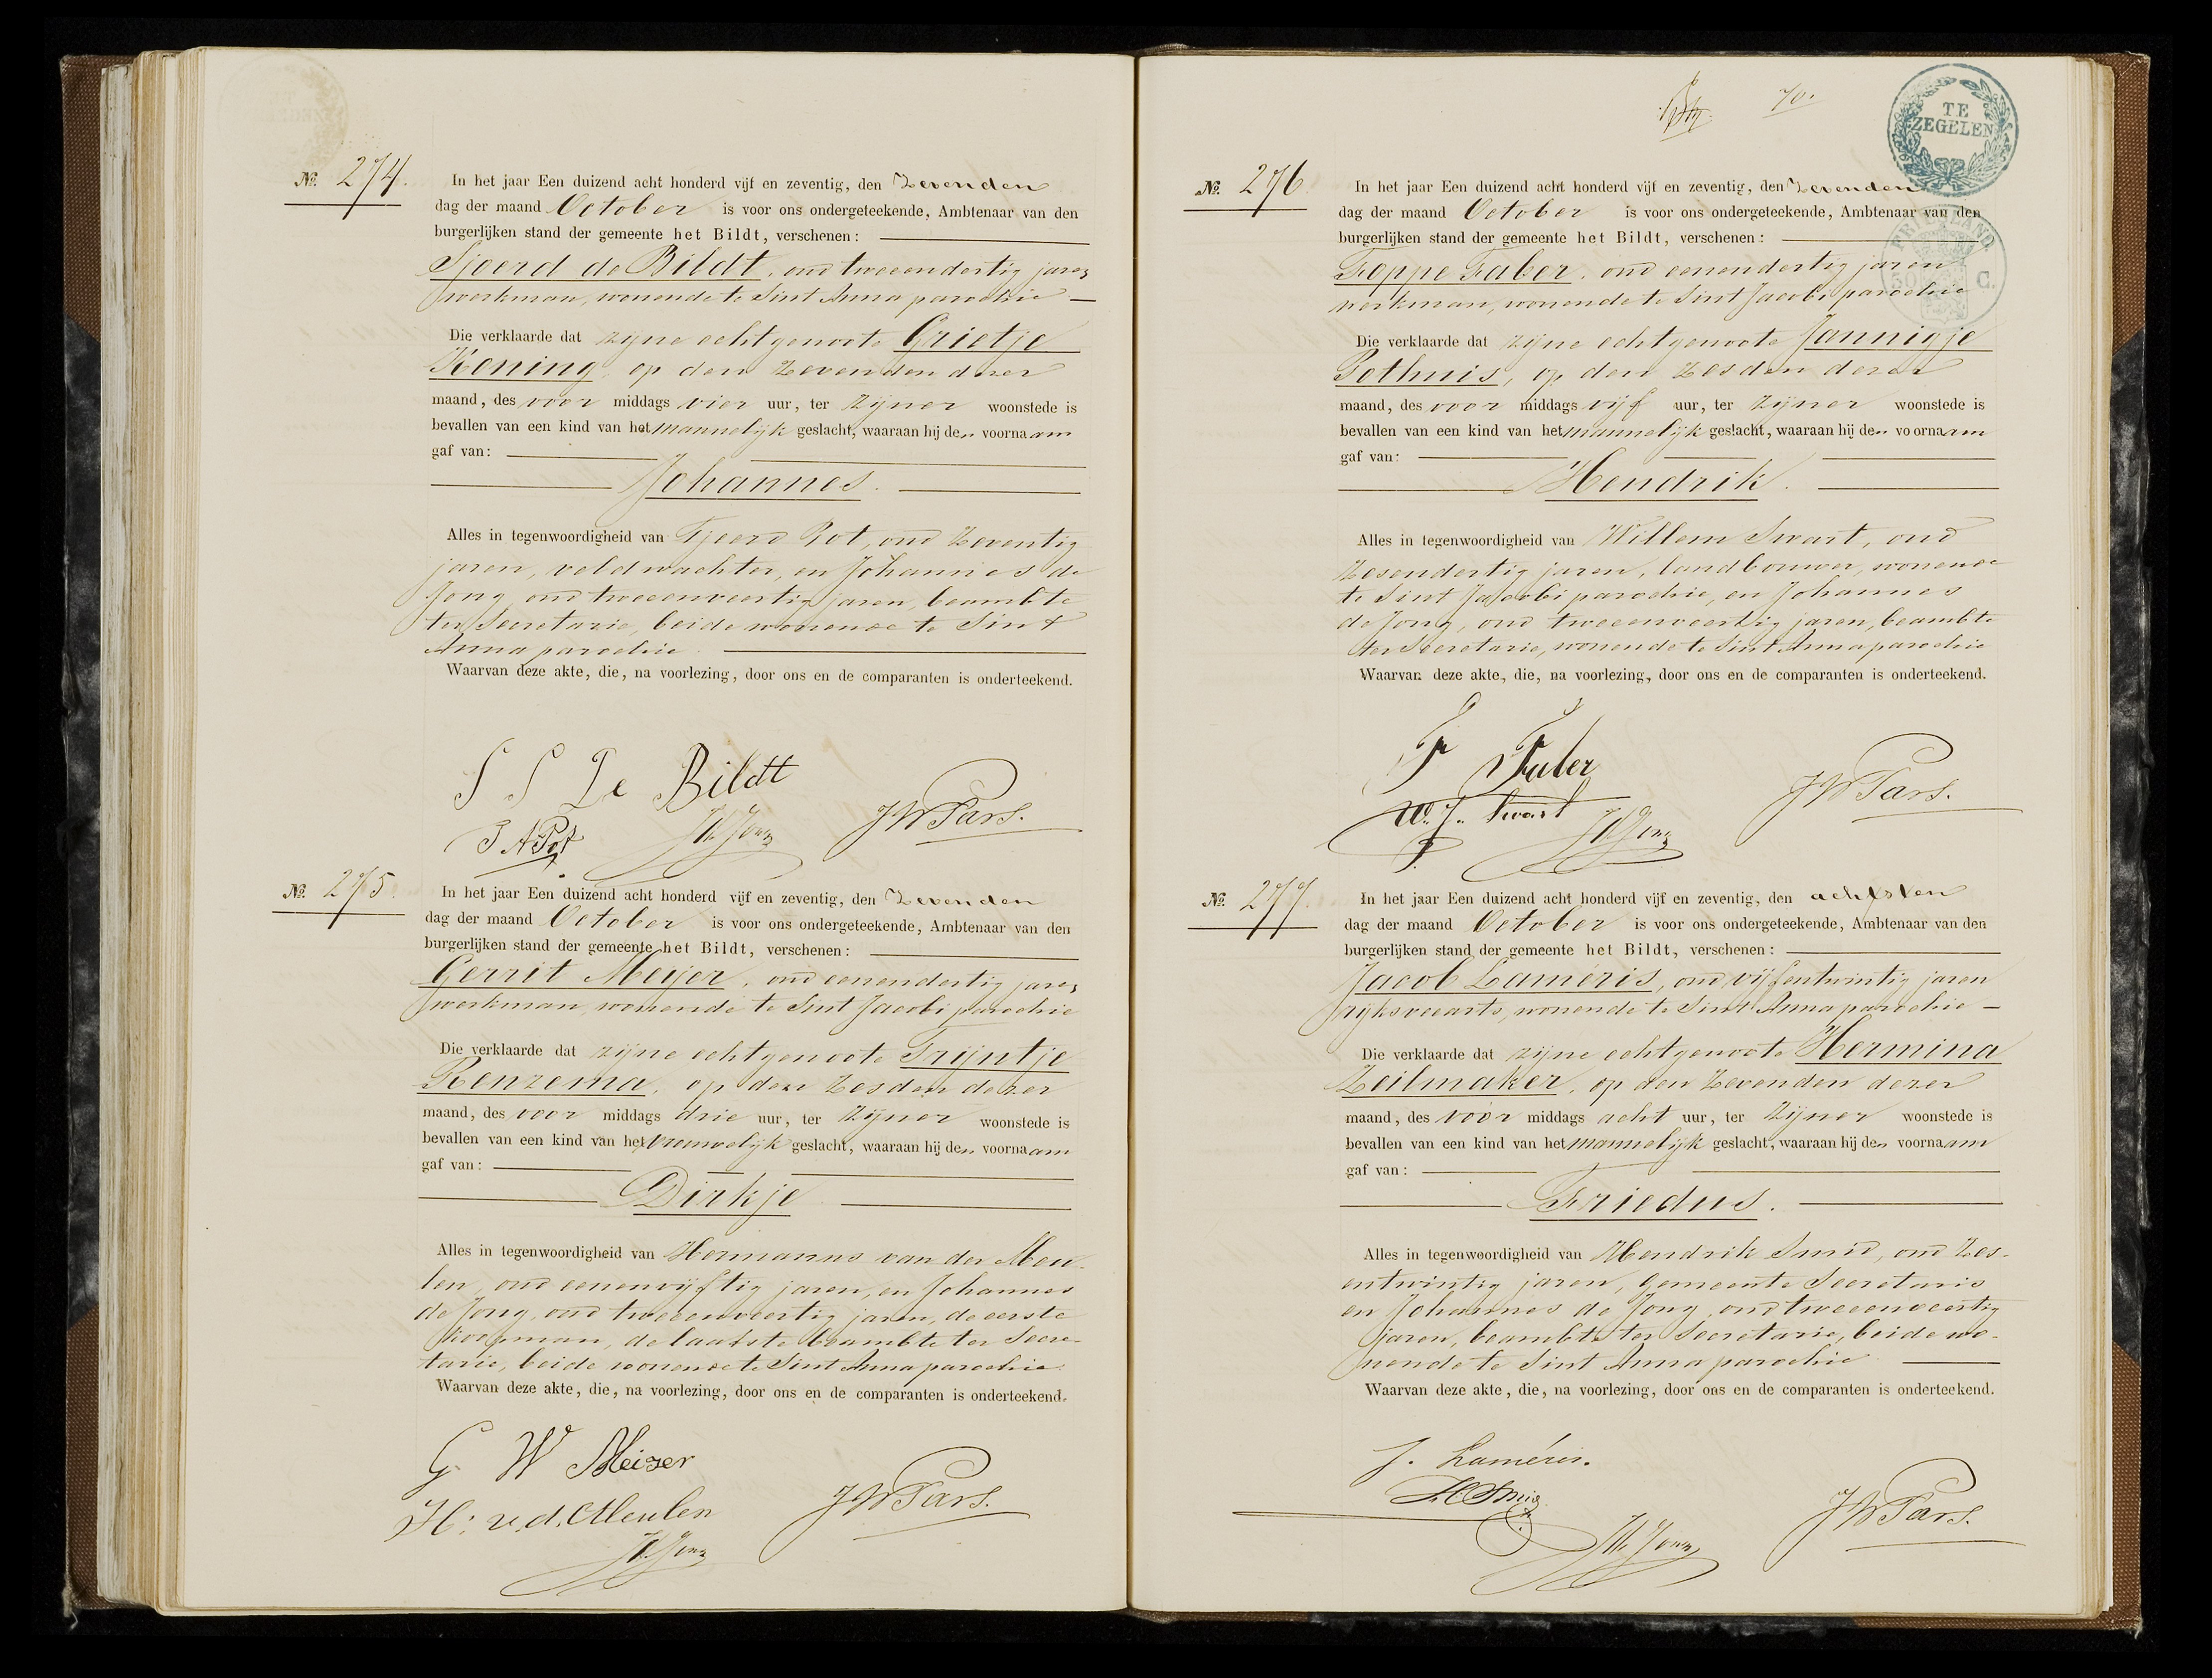 No. 274.
In het jaar Een duizend acht honderd vijf en zeventig, den Zevenden
dag der maand October is voor ons ondergeteekende, Ambtenaar van den
burgerlijken stand der gemeente het Bildt, verschenen:
Sjoerd de Bildt, oud tweeendertig jaren
werkman, wonende te Sint Anna parochie
Die verklaarde dat zijne echtgenoote Grietje
Koning, op den Zevenden dezer
maand, des voor middags vier uur, ter Zijner woonstede is
bevallen van een kind van het mannelijk geslacht, waaraan hij den voornaam
gaf van:
Johannes.
Alles in tegenwoordigheid van Tjeerd Pot, oud Zeventig
jaren, veldwachter, en Johannes de
Jong, oud tweeenveertig jaren, beambte
ter Secretarie, beide wonende te Sint
Anna parochie.
Waarvan deze akte, die, na voorlezing, door ons en de comparanten is onderteekend.
S S De Bildt
T A Pot JdeJong JWPars.
No. 275.
In het jaar Een duizend acht honderd vijf en zeventig, den Zevenden
dag der maand October is voor ons ondergeteekende, Ambtenaar van den
burgerlijken stand der gemeente het Bildt, verschenen:
Gerrit Meijer, oud eenendertig jaren
werkman, wonende te Sint Jacobi parochie
Die verklaarde dat zijne echtgenoote Trijntje
Renzema, op den Zesden dezer
maand, des voor middags drie uur, ter Zijner woonstede is
bevallen van een kind van het vrouwelijk geslacht, waaraan hij den voornaam
gaf van:
Dirkje
Alles in tegenwoordigheid van Hermanus van der Meu-
len, oud eenenvijftig jaren, en Johannes
de Jong, oud tweeenveertig jaren, de eerste
koopman, de laatste beambte ter Secre-
tarie, beide wonende te Sint Anna parochie.
Waarvan deze akte, die, na voorlezing, door ons en de comparanten is onderteekend.
G W Meijer
H: v.d. Meulen JWPars.
JdeJong
70.
TE
ZEGELEN
No. 276.
In het jaar Een duizend acht honderd vijf en zeventig, den Zevenden
dag der maand October is voor ons ondergeteekende, Ambtenaar van den
burgerlijken stand der gemeente het Bildt, verschenen:
FRIESLAND
50 C.
Foppe Faber, oud eenendertig jaren
werkman, wonende te Sint Jacobi parochie
Die verklaarde dat zijne echtgenoote Jannigje
Pothuis, op den Zesden dezer
maand, des voor middags vijf uur, ter Zijner woonstede is
bevallen van een kind van het mannelijk geslacht, waaraan hij den voornaam
gaf van:
Hendrik.
Alles in tegenwoordigheid van Willem Swart, oud
Zesendertig jaren, landbouwer, wonende
te Sint Jacobi parochie, en Johannes
de Jong, oud tweeenveertig jaren, beambte
ter Secretarie, wonende te Sint Anna parochie
Waarvan deze akte, die, na voorlezing, door ons en de comparanten is onderteekend.
F Faber
W. J. Swart JdeJong JWPars.
No. 277.
In het jaar Een duizend acht honderd vijf en zeventig, den achtsten
dag der maand October is voor ons ondergeteekende, Ambtenaar van den
burgerlijken stand der gemeente het Bildt, verschenen:
Jacob Laméris, oud vijfentwintig jaren
rijksveearts, wonende te Sint Anna parochie
Die verklaarde dat zijne echtgenoote Hermina
Zeilmaker, op den Zevenden dezer
maand, des voor middags acht uur, ter Zijner woonstede is
bevallen van een kind van het mannelijk geslacht, waaraan hij den voornaam
gaf van:
Friedus.
Alles in tegenwoordigheid van Hendrik Smid, oud Zes-
entwintig jaren, Gemeente Secretaris
en Johannes de Jong, oud tweeenveertig
jaren, beambte ter Secretarie, beide wo-
nende te Sint Anna parochie
Waarvan deze akte, die, na voorlezing, door ons en de comparanten is onderteekend.
J. Laméris.
H Smid JWPars.
JdeJong